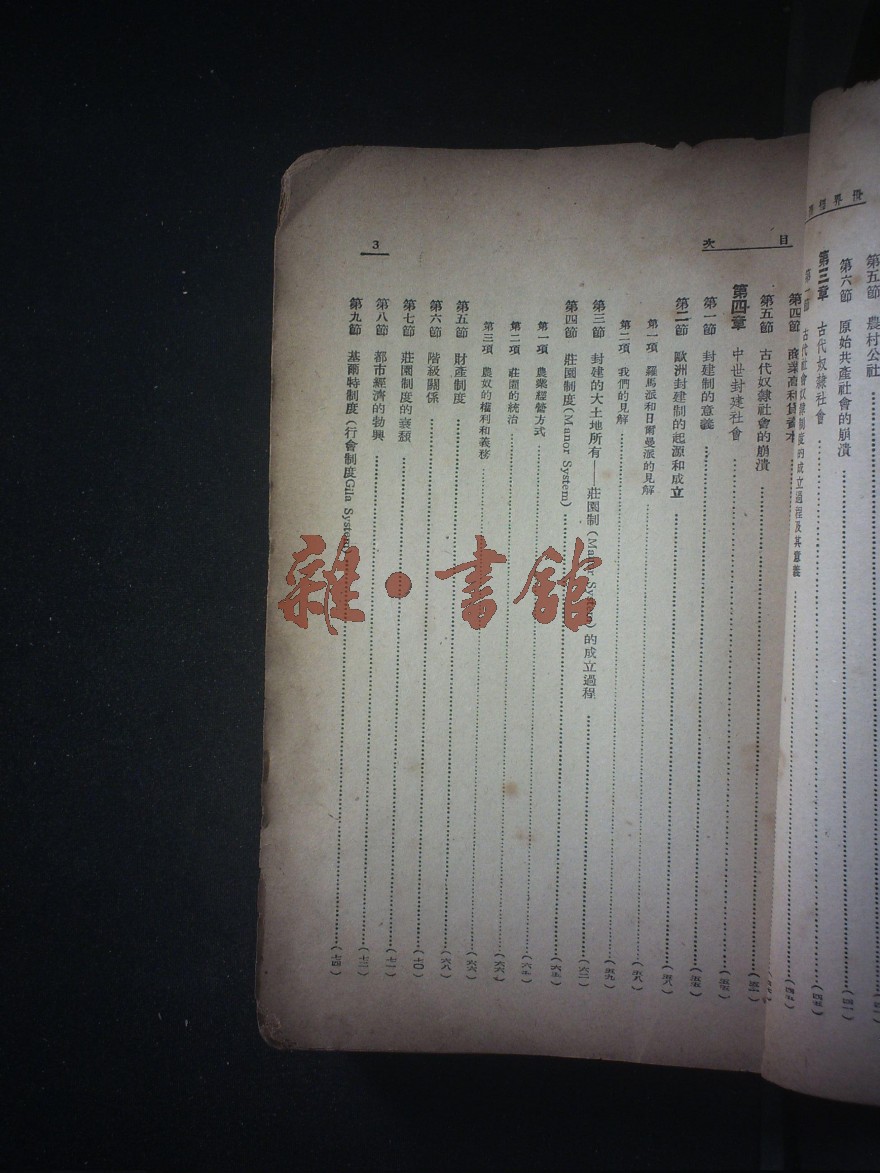 第五節　農村公社
第六節　原始共產社會的崩潰……（四一）
第三章　古代奴隸社會……（四五）
第一節　古代社會奴隸制度的成立過程及其意義……（四五）
目次
3
第四節　商業高利貸資本
第五節　古代奴隸社會的崩潰……（五一）
第四章　中世封建社會……（五五）
第一節　封建制的意義……（五五）
第二節　歐洲封建制的起源和成立……（五八）
第一項　羅馬派和日爾曼派的見解……（五八）
第二項　我們的見解……（五九）
第三節　封建的大土地所有——莊園制（Manor System）的成立過程……（六二）
第四節　莊園制度（Manor System）……（六五）
第一項　農業經營方式……（六五）
第二項　莊園的統治……（六六）
第三項　農奴的權利和義務……（六六）
第五節　財產制度……（六八）
第六節　階級關係……（七〇）
第七節　莊園制度的衰頹……（七一）
第八節　都市經濟的勃興……（七二）
第九節　基爾特制度（行會制度Gila System）……（七四）
雜·書館